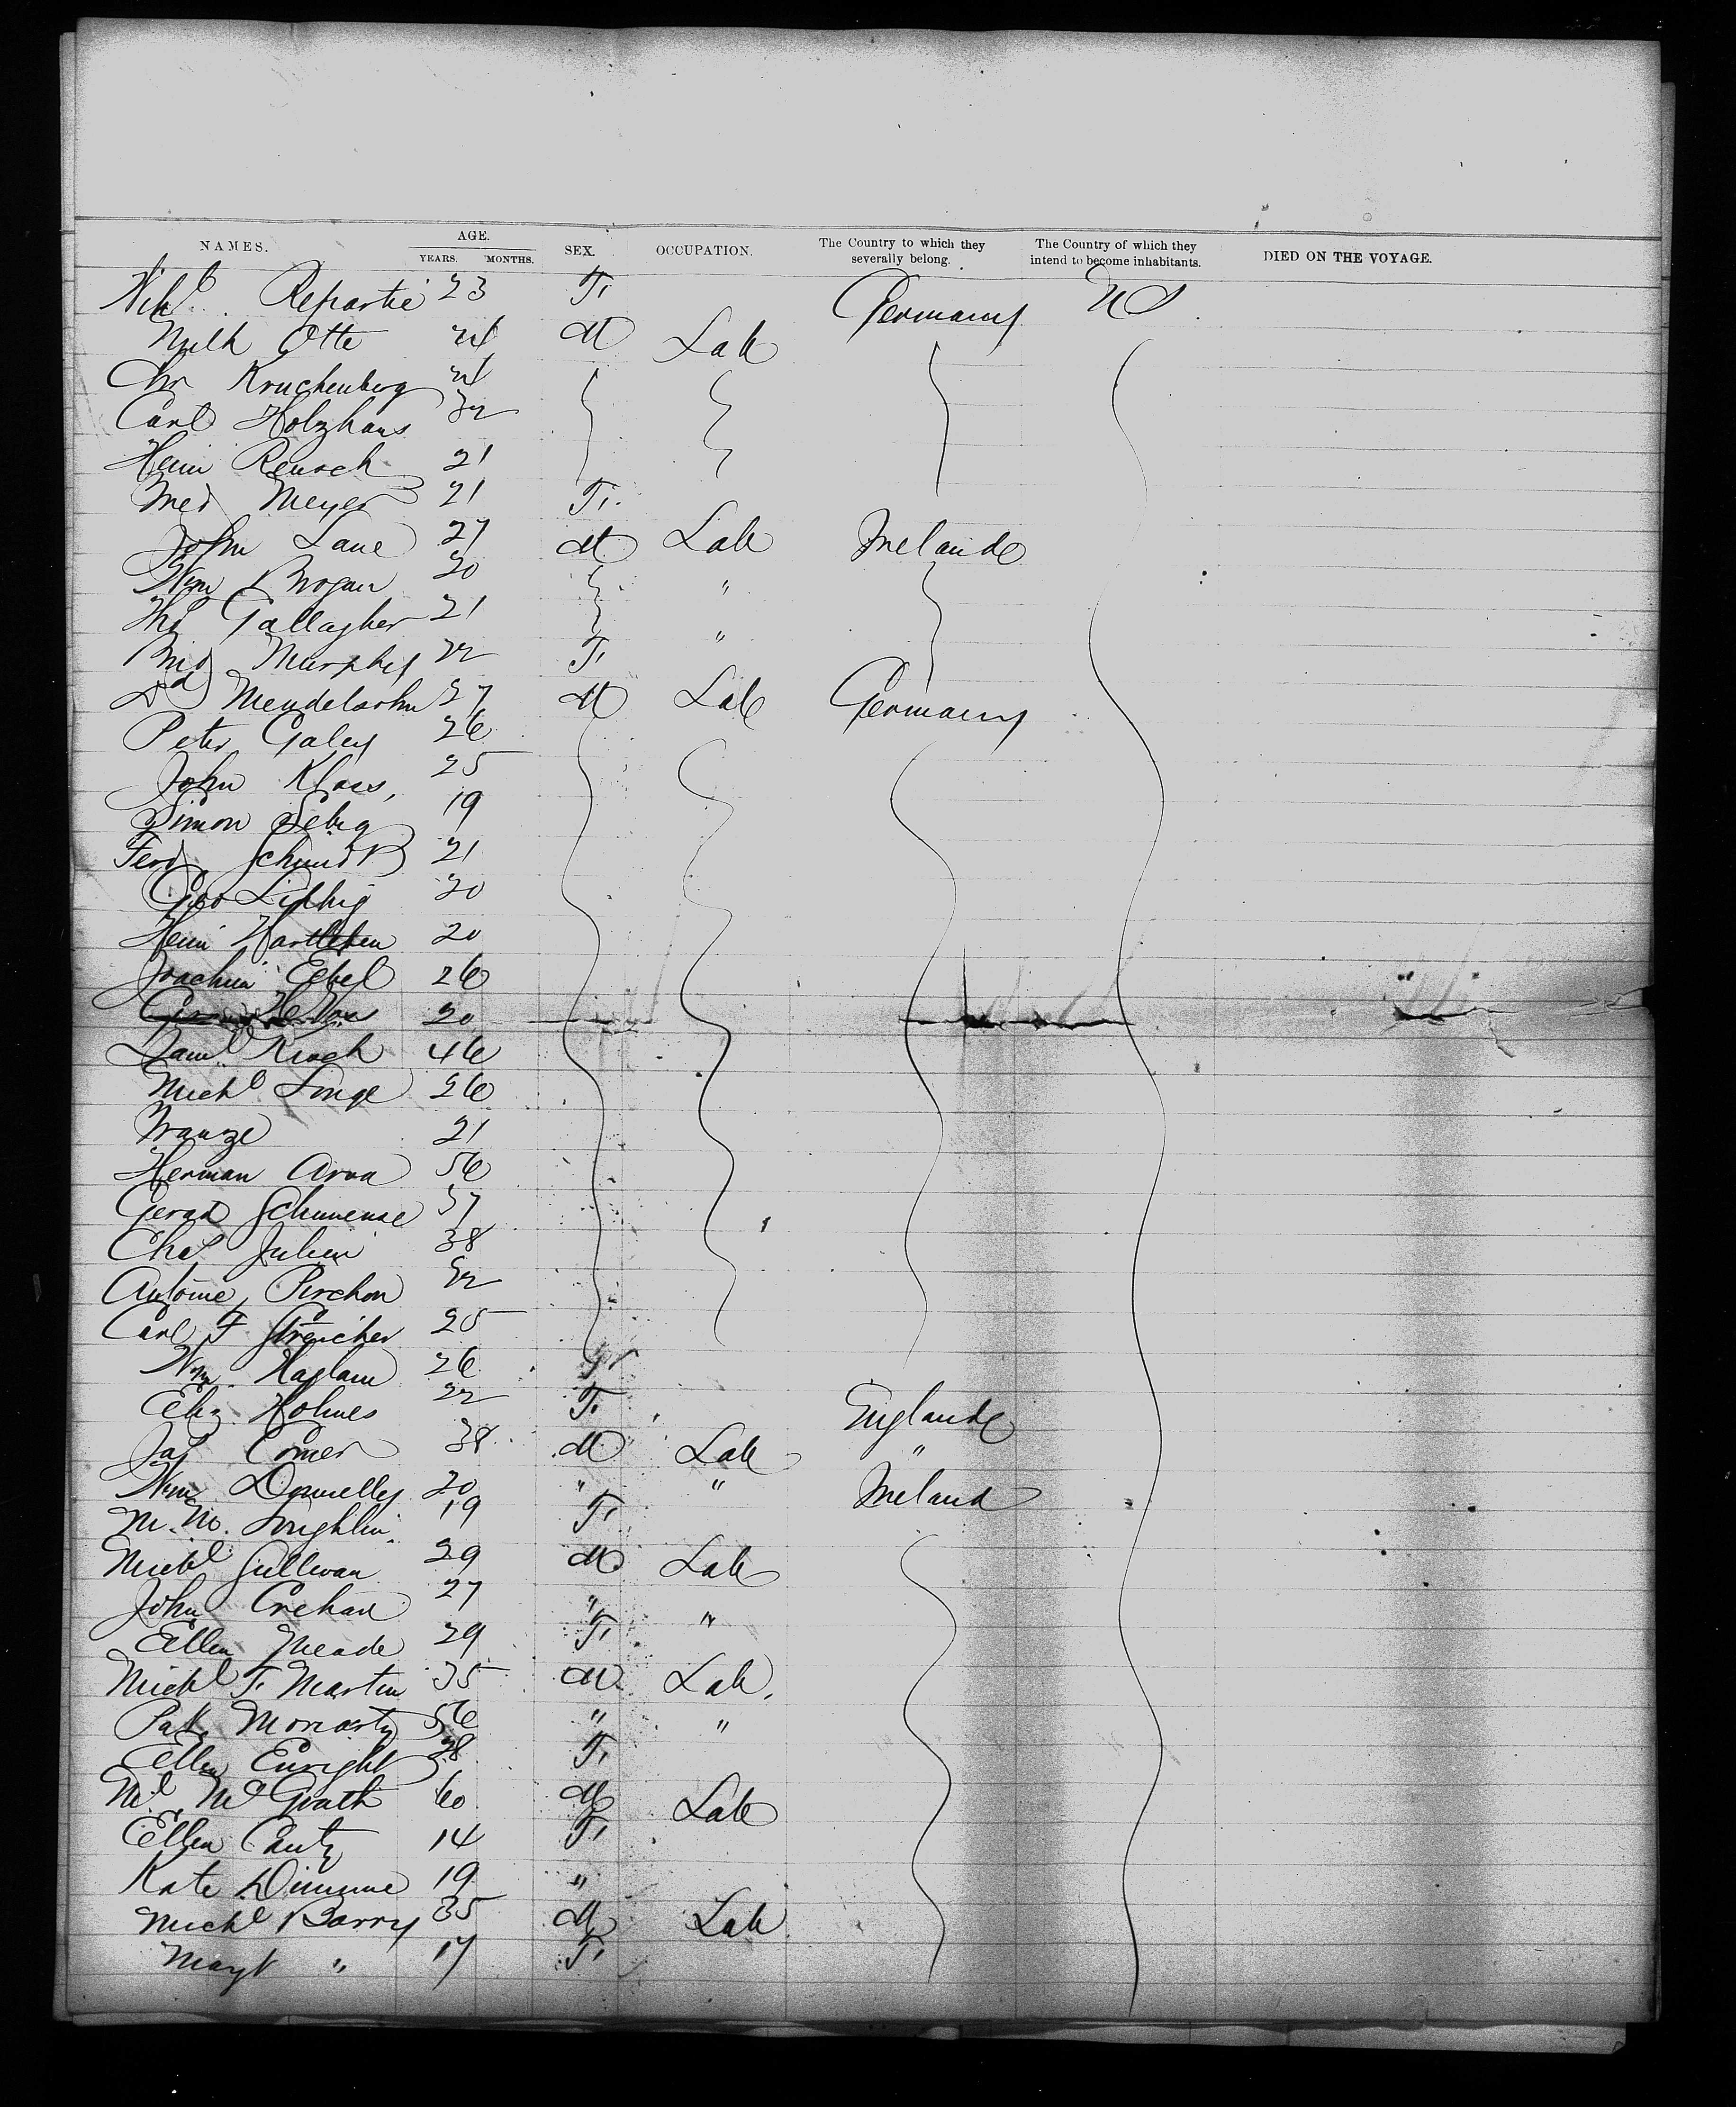 NAMES. AGE. SEX. OCCUPATION. The Country to which they severally belong. The Country of which they intend to become inhabitants. DIED ON THE VOYAGE.
YEARS. MONTHS.
23 F. Germany U S
Otte 24 M Lab
Chr Kruckenberg 24
Carl Holzhaus 32
Heinr Reusch 21
Meyer 21 F.
John Lane 27 M Lab Ireland
Wm Brogan 20 "
Thos Gallagher 21 "
Brid Murphy 22 F.
Mendelsohn 27 M Lab Germany
Peter Galey 26
John Klaus, 25
Simon 19
Ferd Schmidt 21
Geo 20
Heinr Hartleben 20
Joachim Ebel 26
20
Danl Kroch 46
Michl Longe 26
21
Herman 56
Gerad 37
Chas Julien 38
Antoine Perchon 32
Carl F Streicher 25
Wm Haslam 26
Eliz Holmes 22 F. England
Jas Comer 38 M Lab "
Wm Donnelly 20 " " Ireland
M. Mc Loughlin 19 F.
Michl Sullivan 29 M Lab
John Crehan 27 " "
Ellen Meade 29 F.
Michl F. Martin 35 M Lab.
Pat Moriarty 56 " "
Ellen Enright F.
Ml McGrath 60 M Lab
Ellen Canty 14 F.
Kate 19 "
Michl Barry 35 M Lab
Magt " 17 F.